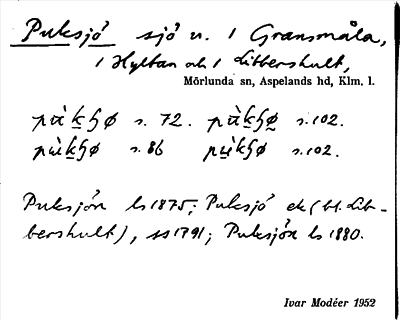 Puksjö sjö v. 1 Gransmåla,
1 Hyltan och 1 Libbershult,
Mörlunda sn, Aspelands hd, Klm. l.
s. 72. s. 102.
s. 86 s. 102.
Puksjön ls 1875; Puksjö ek (bl. Lib-
bershult), ss 1791; Puksjön ls 1880.
Ivar Modéer 1952